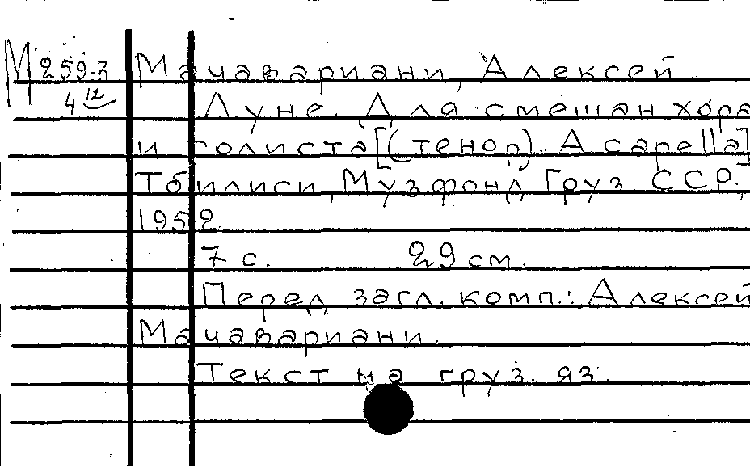 М 259-3 Мачавариани, Алексей
4 12 Луне. Для смешан хора
и солиста [(тенор). A capella]
Тбилиси, Музфонд Груз ССР,
1952.
7 с. 29 см.
Перед загл. комп.: Алексей
Мачавариани.
Текст на груз. яз.